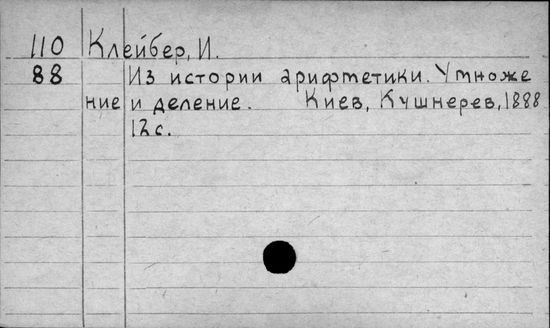 110 Клейбер, И.
88 Из истории арифметики. Умноже
ние и деление. Киев, Кушнерев, 1888
12 с.